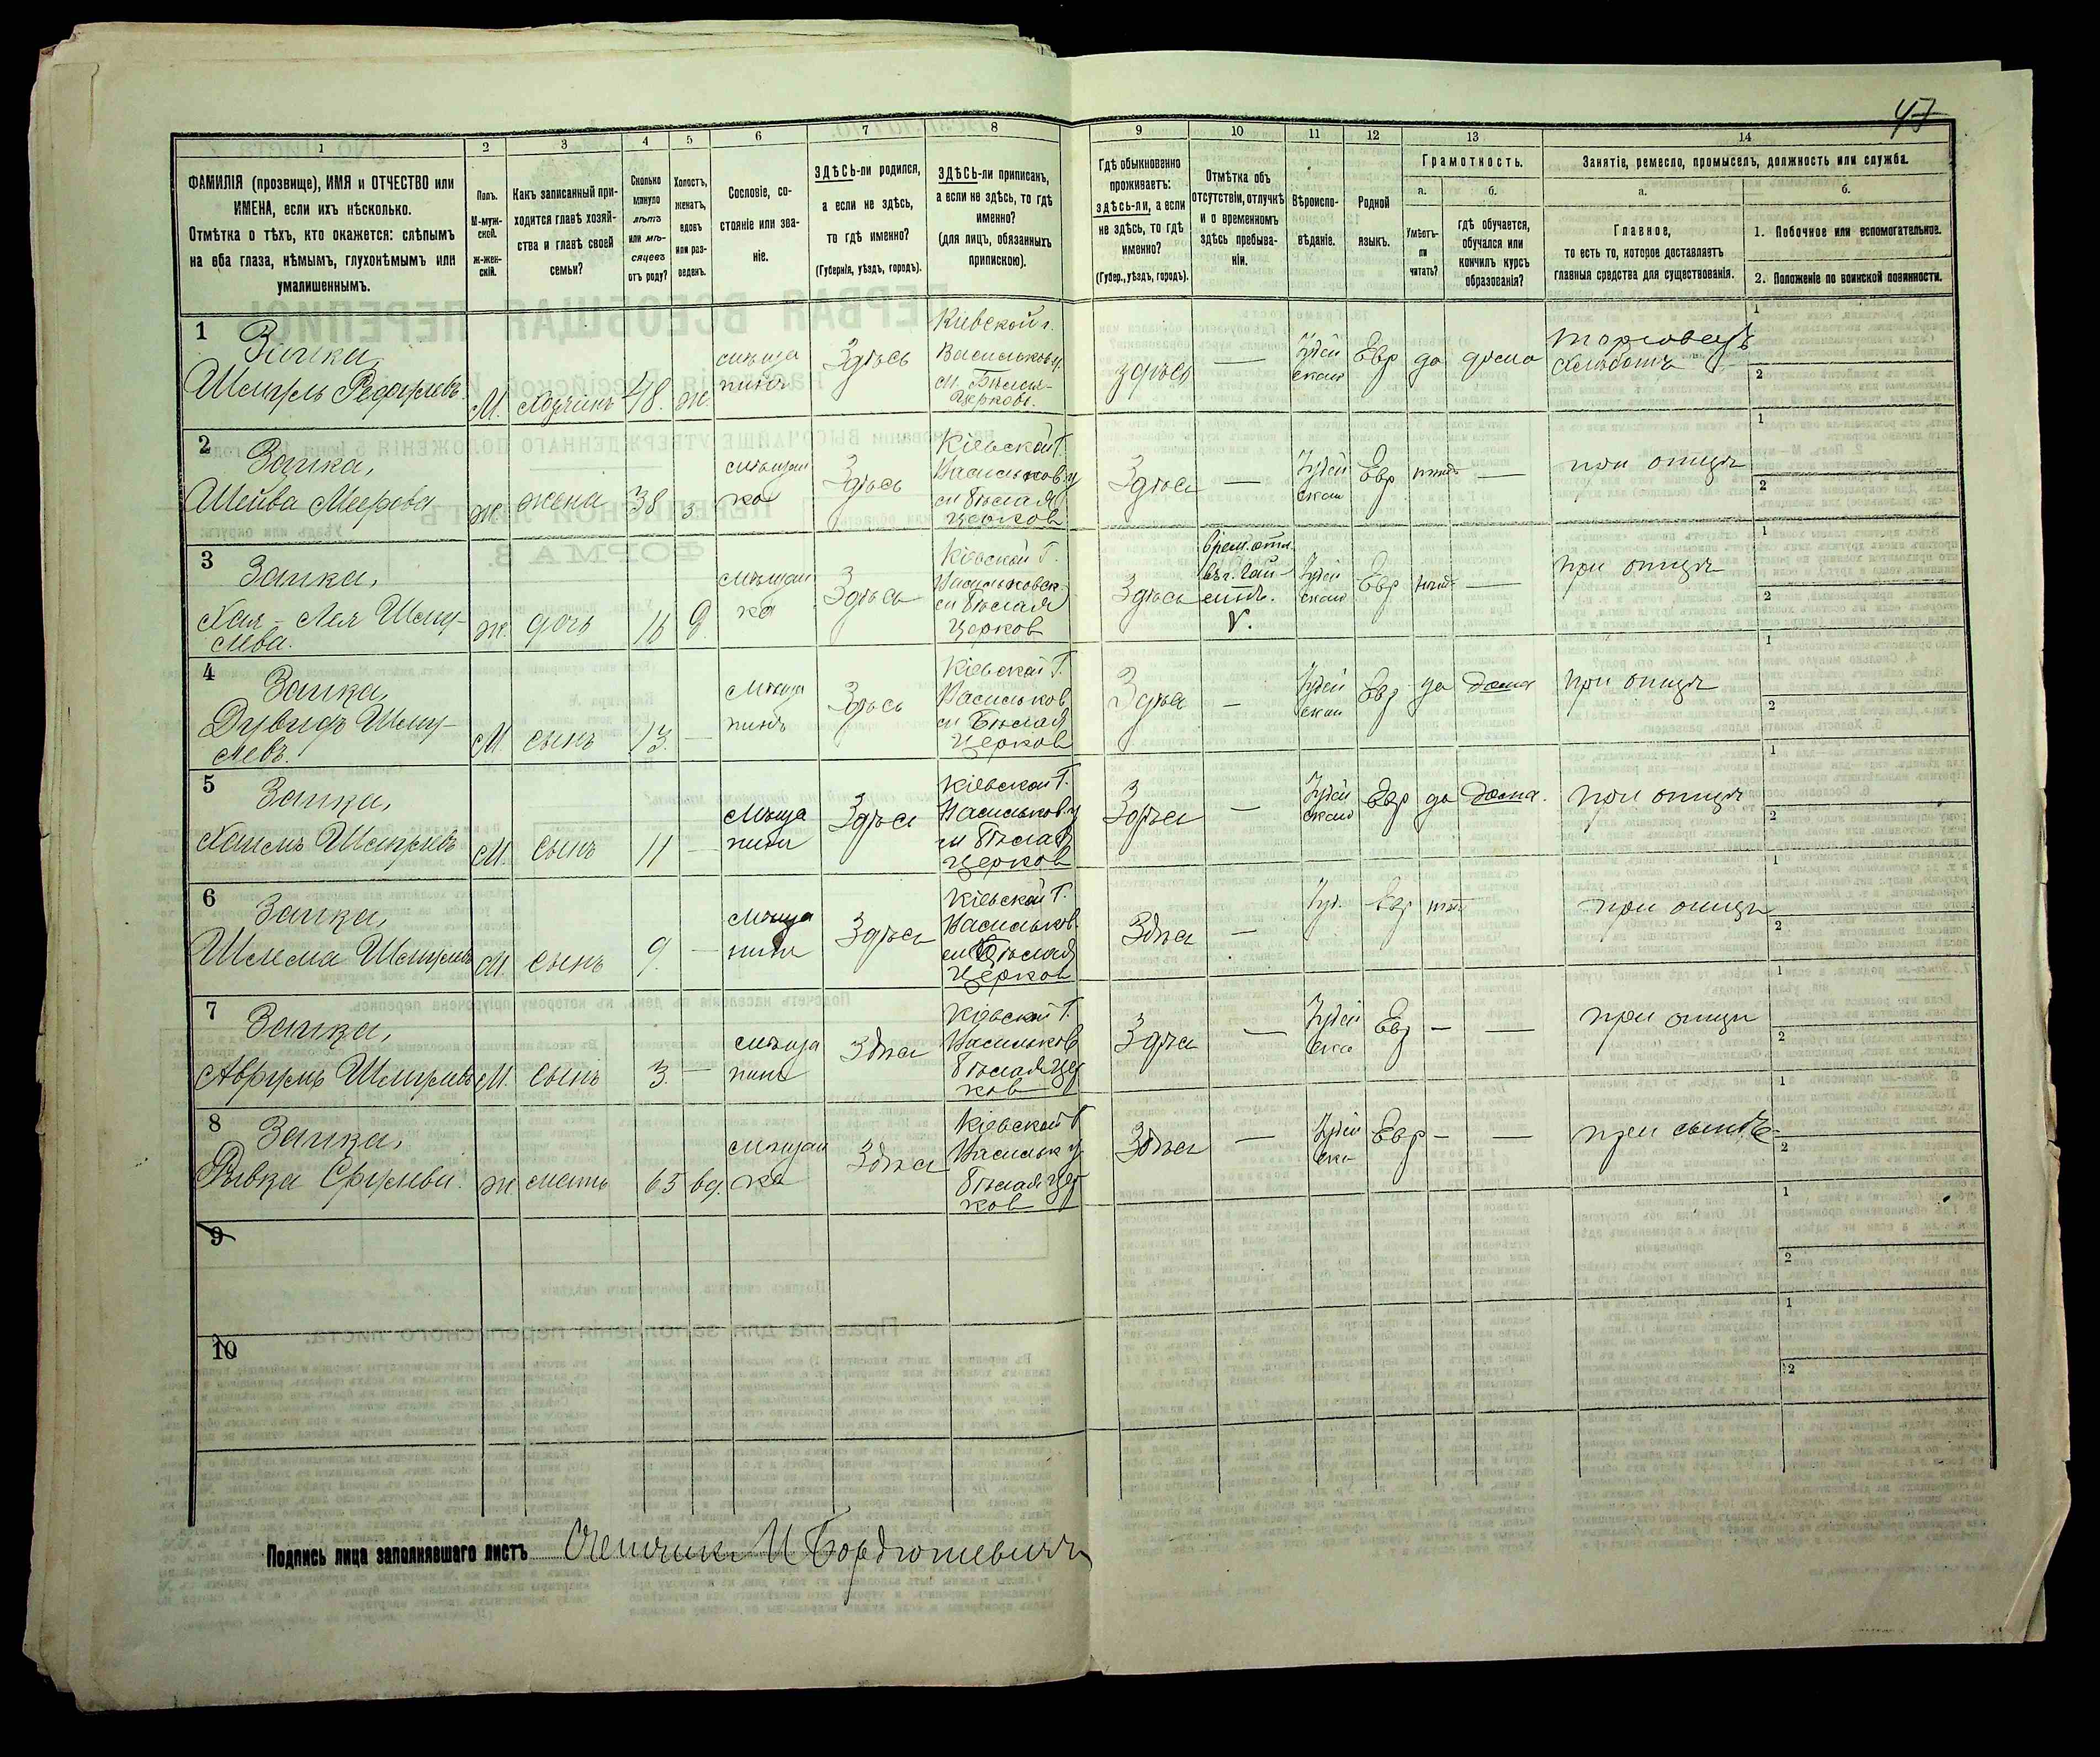 47
1 2 3 4 5 6 7 8 9 10 11 12 13 14
ФАМИЛІЯ (прозвище), ИМЯ и ОТЧЕСТВО или
ИМЕНА, если ихъ нѣсколько.
Отмѣтка о тѣхъ, кто окажется: слѣпымъ
на оба глаза, нѣмымъ, глухонѣмымъ или
умалишеннымъ.
Полъ.
М-муж-
ской.
ж-жен-
скій.
Какъ записанный при-
ходится главѣ хозяй-
ства и главѣ своей
семьи?
Сколько
минуло
лѣтъ
или мѣ-
сяцевъ
отъ роду?
Холостъ,
женатъ,
вдовъ
или раз-
веденъ.
Сословіе, со-
стояніе или зва-
ніе.
ЗДѢСЬ-ли родился,
а если не здѣсь,
то гдѣ именно?
(Губернія, уѣздъ, городъ).
ЗДѢСЬ-ли приписанъ,
а если не здѣсь, то гдѣ
именно?
(для лицъ, обязанныхъ
припискою).
Гдѣ обыкновенно
проживаетъ:
здѣсь-ли, а если
не здѣсь, то гдѣ
именно?
(Губер., уѣздъ, городъ).
Отмѣтка объ
отсутствіи, отлучкѣ
и о временномъ
здѣсь пребыва-
ніи.
Вѣроиспо-
вѣданіе.
Родной
языкъ.
Грамотность.
а.
Умѣетъ-
ли
читать?
б.
гдѣ обучается,
обучался или
кончилъ курсъ
образованія?
Занятіе, ремесло, промыселъ, должность или служба.
а.
Главное,
то есть то, которое доставляетъ
главныя средства для существованія.
б.
1. Побочное или вспомогательное.
2. Положеніе по воинской повинности.
1
Заика
Шмуль
М. хозяинъ 48. ж.
мѣща
нинъ
Здѣсь
Кіевской г.
Васильков у.
м. Бѣлая-
Церковь.
здѣсь —
Іудей
ской
Евр да дома
торговецъ
1
2
2
Заика,
Меерова
ж. жена 38 з.
мѣщан
ка
Здѣсь
Кіевской Г.
Васильков. у
м Бѣлая
Церков
Здѣсь —
Іудей
ской
Евр нѣтъ —
при отцѣ
1
2
3
Заика,
Хая-Лея Шму-
лева.
ж. дочь 16 д.
мѣщан
ка
Здѣсь
Кіевской Г.
Васильковск
м Бѣлая
Церков
Здѣсь
Врем. отл.
V.
Іудей
ской
Евр нѣтъ —
при отцѣ
1
2
4
Заика,
Дувидъ Шму-
левъ.
М сынъ 13. —
Мѣща
нинъ
Здѣсь
Кіевской Г.
Васильков
м Бѣлая
Церков
Здѣсь —
Іудей
ской
Евр да дома
при отцѣ
1
2
5
Заика,
М. сынъ 11 —
Мѣща
нин
Здѣсь
Кіевской Г.
Васильков. у
м Бѣлая
Церков
Здѣсь —
Іудей
ской
Евр да дома.
при отцѣ
1
2
6
Заика,
Шлема Шмулевъ
М сынъ 9. —
Мѣща
нин
Здѣсь
Кіевской Г.
Васильков.
м Бѣлая
Церков
Здѣсь —
Іуд. Евр нѣт
при отцѣ
1
2
7
Заика,
Аврумъ Шмулевъ
М. сынъ 3. —
мѣща
нин
Здѣсь
Кіевской Г.
Васильков
Бѣлая Цер
ков
Здѣсь —
Іудей
ско
Евр — —
при отцѣ
1
2
8
Заика,
Рывка
ж мать 65 вд.
Мѣщан
ка
Здѣсь
Кіевской Г
Васильк у
Бѣлая Цер
ков
Здѣсь —
Іудей
ско
Евр — —
при сынѣ
1
2
9
1
2
10
1
2
Подпись лица заполнявшаго листъ Счетчикъ И Бордюшевичъ